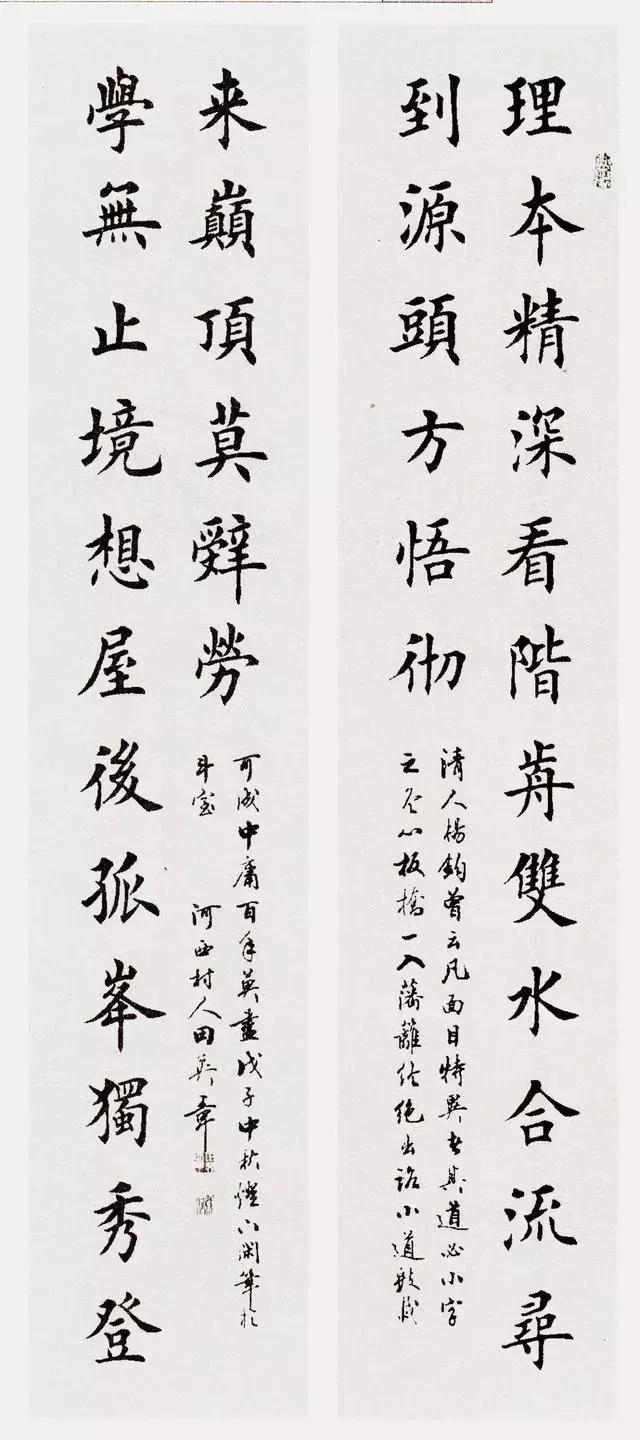 理本精深看階歬雙水合流尋
到源頭方悟彻
清人楊鈞曾云凡面目特異者其道必小字
之冬心板橋一入藩籬終絕出路小道數歲
學無止境想屋後孤峯獨秀登
来巔頂莫辭勞
可成中庸百年莫盡戊子中秋燈下閑筆於
斗室 河西村人田英章